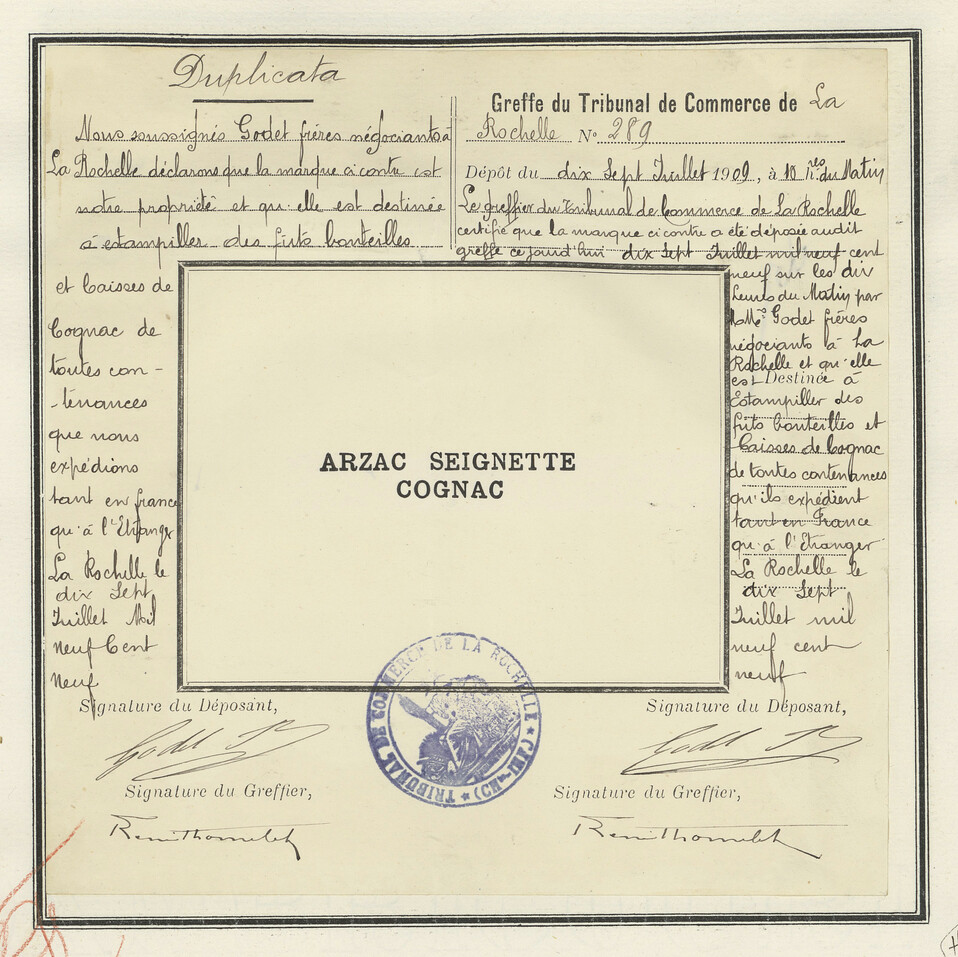 Duplicata
Nous soussignés Godet frères négociants à
La Rochelle déclarons que la marque ci contre est
notre propriété et qu'elle est destinée
à estampiller des futs bouteilles
et Caisses de
Cognac de
toutes con-
-tenances
que nous
expédions
tant en france
qu'à l'Etranger
La Rochelle le
dix Sept
Juillet Mil
Neuf Cent
Neuf
Signature du Déposant,
Godet Fr
Signature du Greffier,
Greffe du Tribunal de Commerce de La
Rochelle N° 289
Dépôt du dix Sept Juillet 1909, à 10 hres du Matin
Le greffier du Tribunal de Commerce de La Rochelle
certifie que la marque ci contre a été déposée audit
greffe ce jourd'hui dix Sept Juillet mil neuf cent
neuf sur les dix
heures du Matin par
MMrs Godet frères
négociants à La
Rochelle et qu'elle
est Destinée à
Estampiller des
futs bouteilles et
Caisses de Cognac
de toutes contenances
qu'ils expédient
tant en France
qu'à l'Etranger
La Rochelle le
dix Sept
Juillet mil
neuf cent
neuf
Signature du Déposant,
Godet Fr
Signature du Greffier,
ARZAC SEIGNETTE
COGNAC
TRIBUNAL DE COMMERCE DE LA ROCHELLE * (CH.-INF.) *